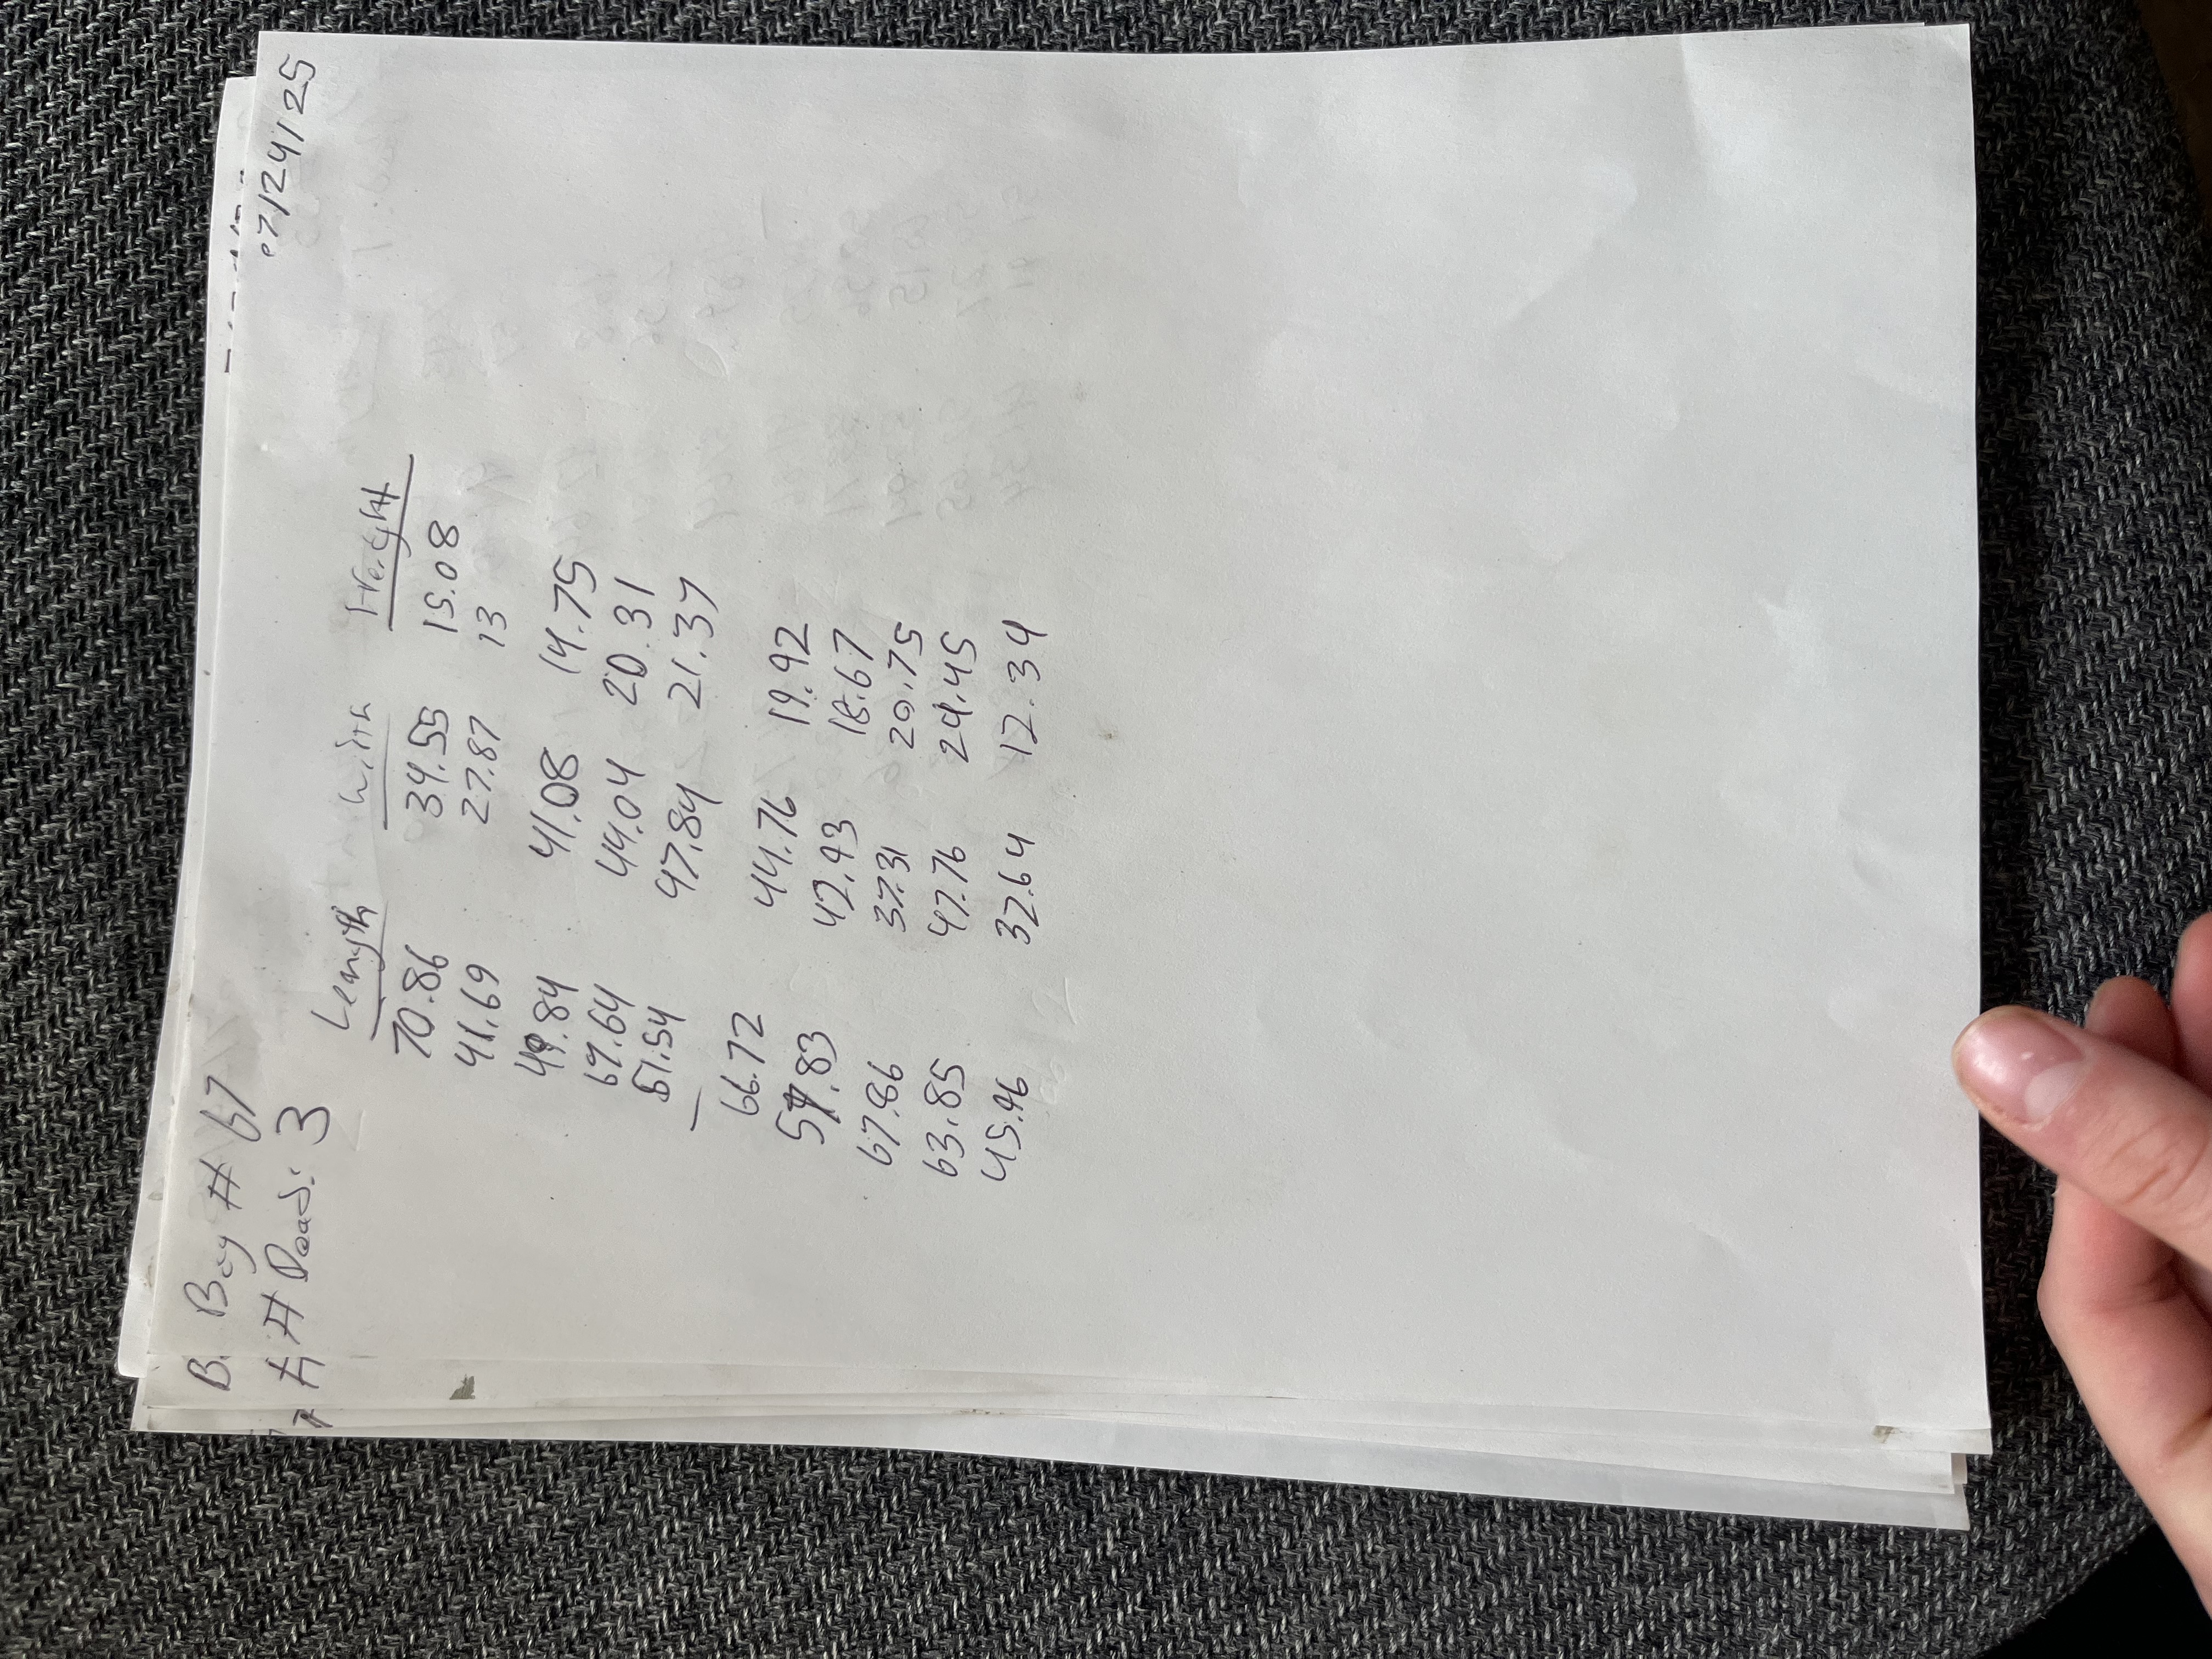 Bag # 67
07/24/25
# Dead: 3
Length Width Height
70.86 34.55 15.08
41.69 27.87 13
49.84 41.08 14.75
69.64 44.04 20.31
51.54 47.84 21.37
—
66.72 44.76 19.92
59.83 42.93 18.67
67.86 37.31 20.75
63.85 47.76 24.45
45.96 32.64 12.34